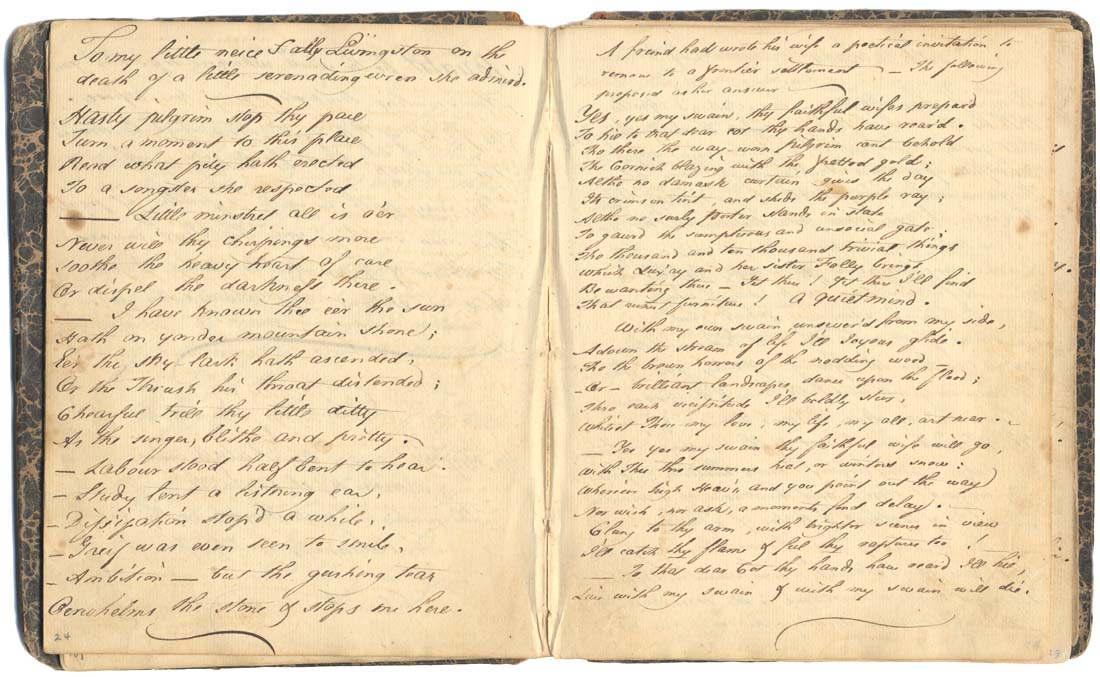 To my little neice Sally Livingston on the
death of a little serenading wren she admird.
Hasty pilgrim stop thy pace
Turn a moment to this place
Read what pity hath erected
To a songster she respected
— Little minstrel all is o'er
Never will thy chirpings more
soothe the heavy heart of care
Or dispel the darkness there.
— I have known thee e'er the sun
Hath on yonder mountain shone;
E'er the sky-lark hath ascended,
Or the Thrush his throat distended;
Chearful trill thy little ditty
As the singer, blithe and pretty.
— Labour stood half bent to hear.
— Study lent a listning ear,
— Dissipation stop'd a while,
— Greif was even seen to smile,
— Ambition — but the gushing tear
Oerwhelms the stone & stops me here.
24
A friend had wrote his wife a poetical invitation to
remove to a frontier settlement — The following
proposed as her answer
Yes, yes my swain, thy faithful wifes prepard
To hie to that dear cot thy hands have rear'd.
Tho there the way-worn pilgrim cant behold
The Cornich blazing with the fretted gold;
Altho no damask curtain gives the day
Its crimson tint, and shide the purple ray;
Altho no surly Porter stands in state
To gaurd the sumptuous and unsocial gate;
Tho thousand and ten thousand trivial things
which Luxury and her sister Folly brings
Be wanting there — Yet there! Yet there I'll find
That richest furniture! A quiet mind.
With my own swain unsever'd from my side,
Adown the stream of life I'll Joyous glide.
Tho the brown horrors of the nodding wood
— Or — brilliant landscapes, dance upon the flood;
Thro each vicissitude I'll boldly steer,
Whilst Thou my love, my life, my all, art near.
— Yes yes my swain thy faithful wife will go,
With Thee thro summers heat, or winters snow:
Wherever high Heav'n and you point out the way
Nor wish, nor ask, a moments fond delay.
Clung to thy arm, with brighter scenes in view
I'll catch thy flame & feel thy raptures too!
— To that dear Cot thy hands have reard I'll hie,
Live with my swain & with my swain will die.